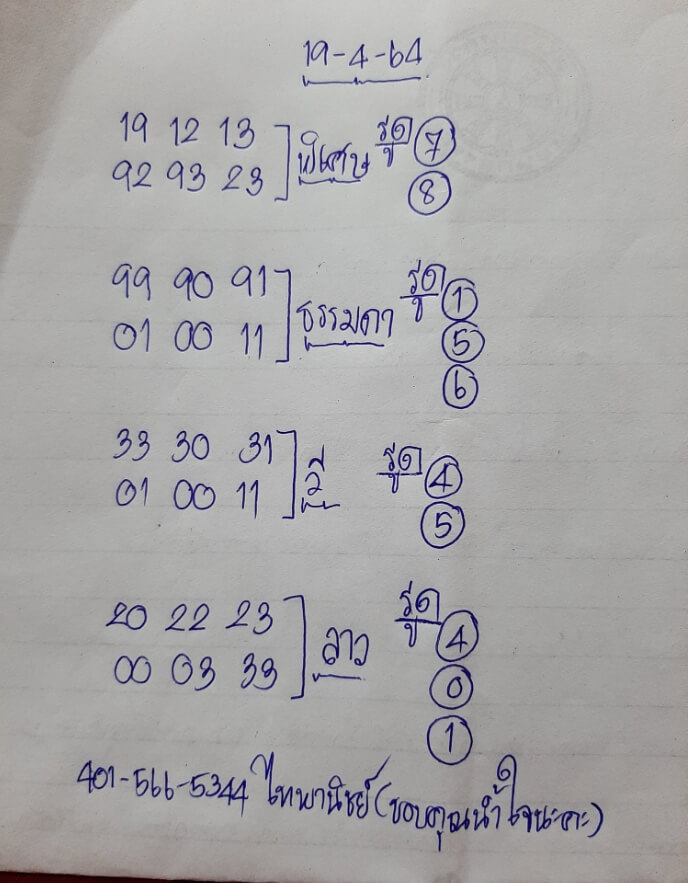 19-4-64
19 12 13
92 93 23
พิเศษ รูด 7
8
99 90 91
01 00 11
ธรรมดา รูด 1
5
6
33 30 31
01 00 11
วี รูด 4
5
20 22 23
00 03 33
ลาว รูด 4
0
1
401-566-5344 ไทพานิชย์ (ขอบคุณน้ำใจนะคะ)